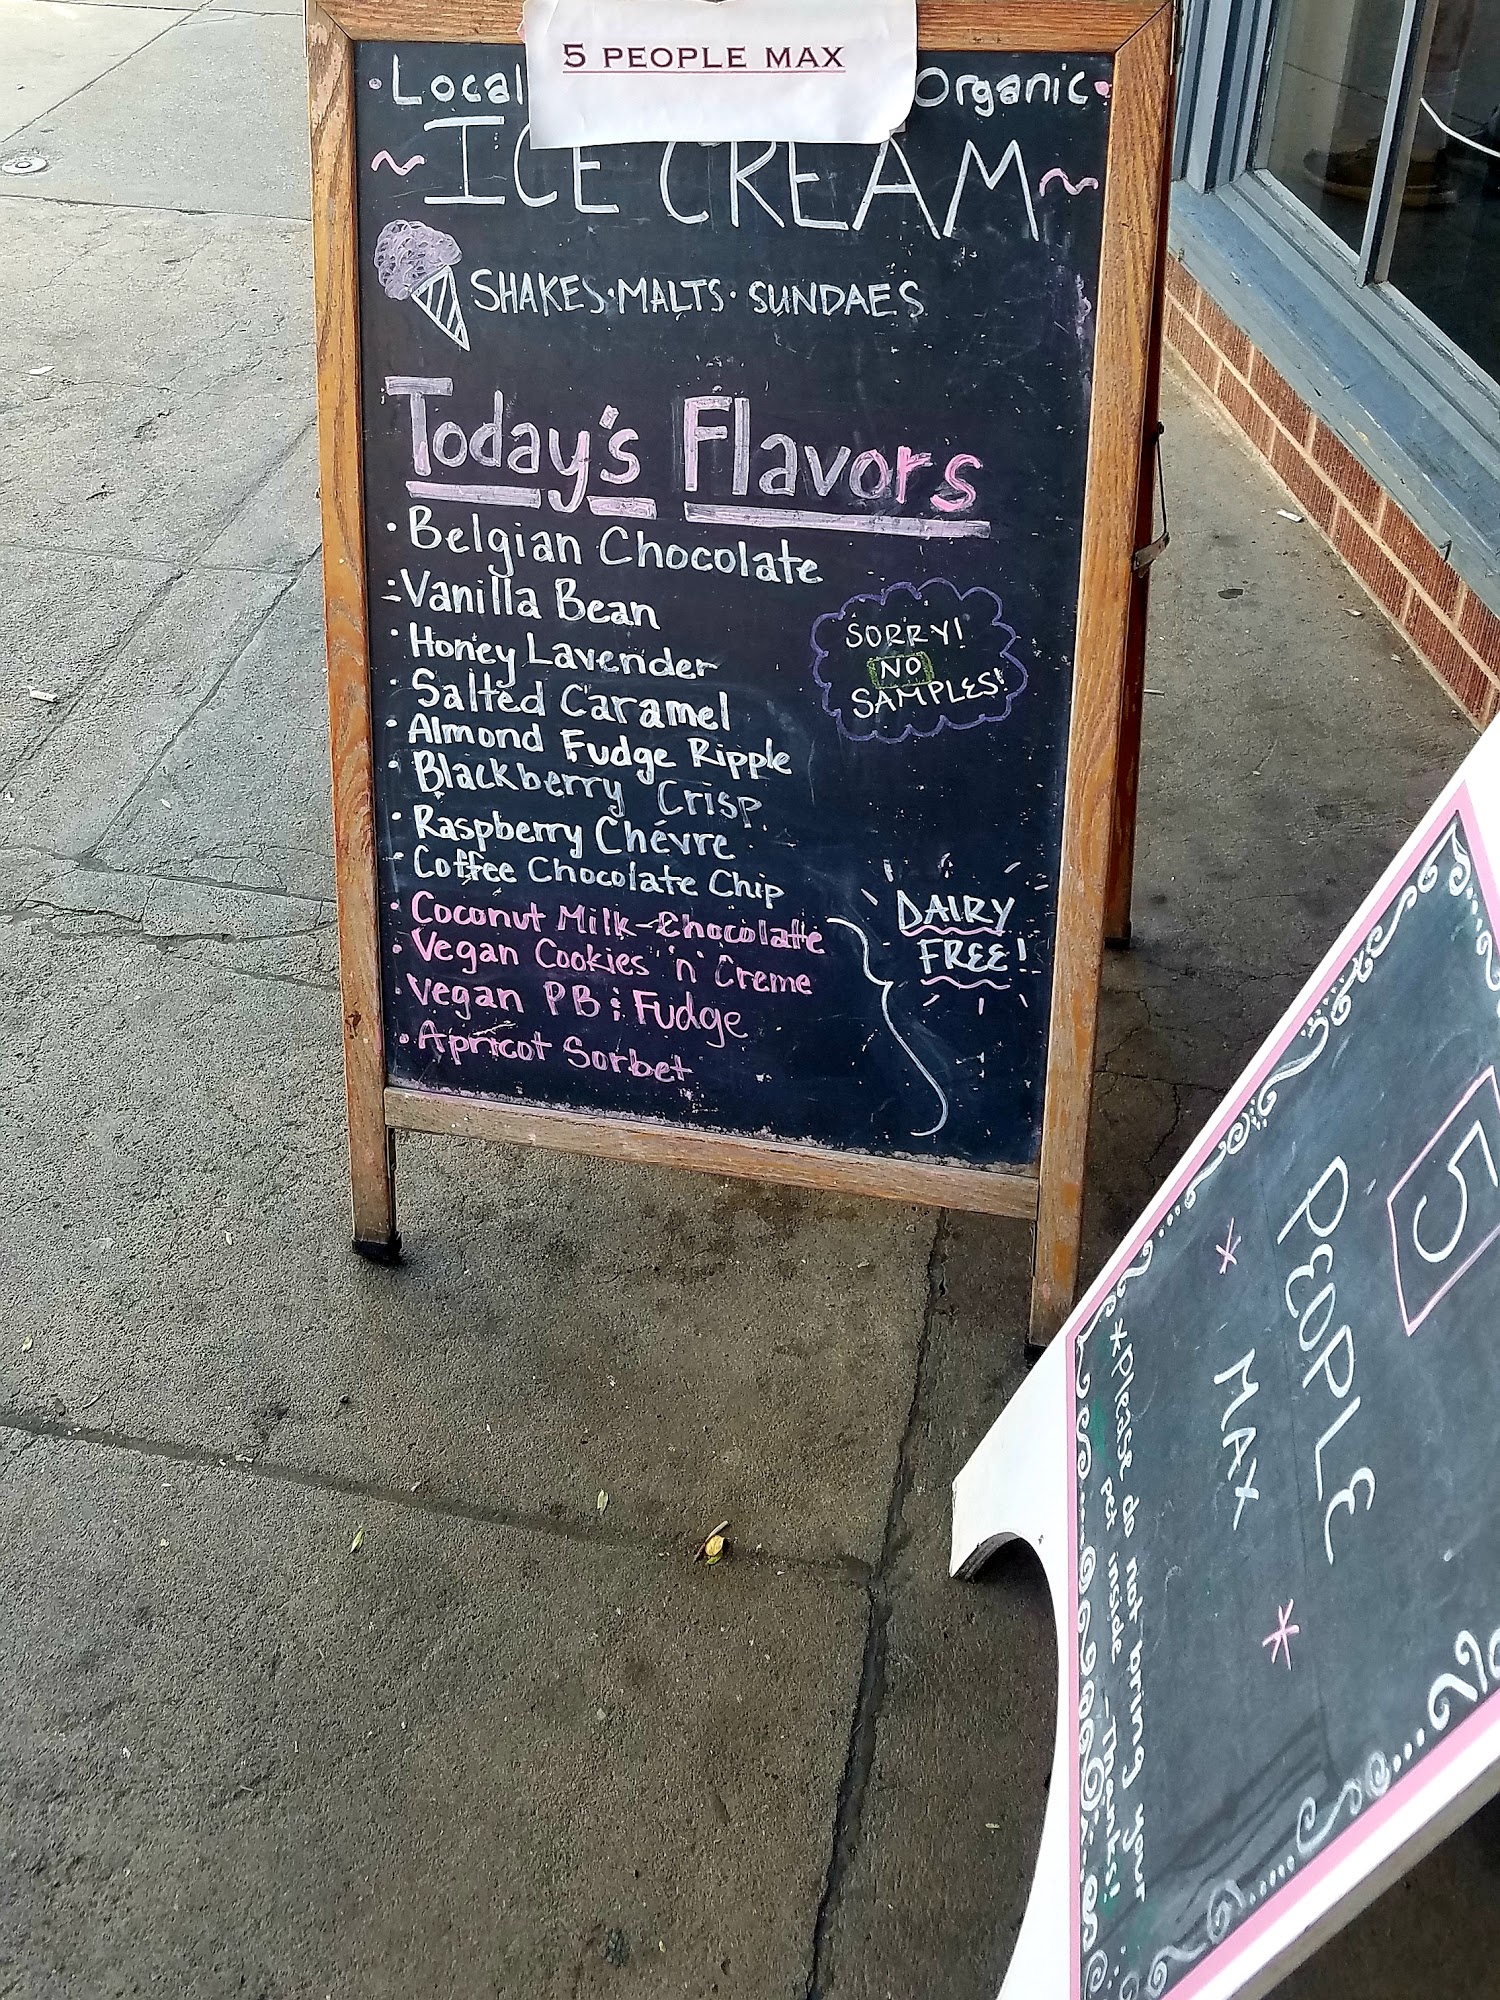 5 PEOPLE MAX
• Local Organic •
~ ICE CREAM ~
SHAKES • MALTS • SUNDAES
Today's Flavors
• Belgian Chocolate
• Vanilla Bean
• Honey Lavender
• Salted Caramel
• Almond Fudge Ripple
• Blackberry Crisp
• Raspberry Chévre
• Coffee Chocolate Chip
SORRY!
NO
SAMPLES!
• Coconut Milk-Chocolate
• Vegan Cookies 'n' Creme
• Vegan PB & Fudge
• Apricot Sorbet
DAIRY
FREE!
5
PEOPLE
* MAX *
*Please do not bring your
pet inside -Thanks!